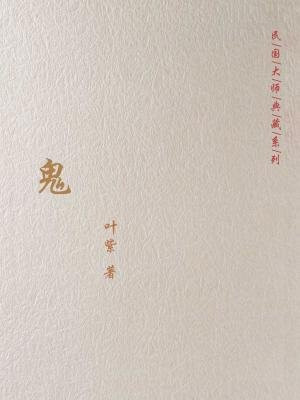 民国大师典藏系列
鬼
叶紫 著